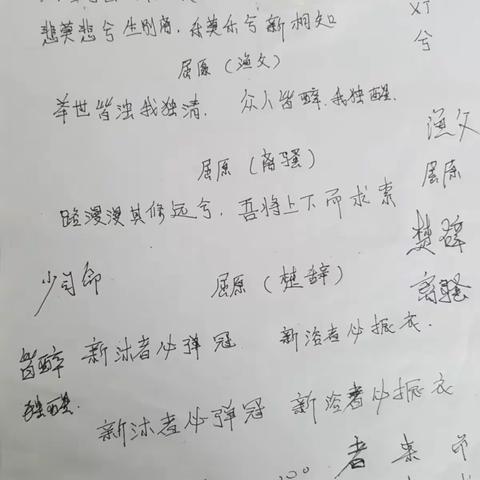 悲莫悲兮生别离，乐莫乐兮新相知
兮
屈原（渔父）
举世皆浊我独清. 众人皆醉.我独醒.
渔父
屈原（离骚）
屈原
路漫漫其修远兮，吾将上下而求索
楚辞
少司命
屈原（楚辞）
离骚
皆醉
新沐者必弹冠 新浴者必振衣.
独醒.
新沐者必弹冠 新浴者必振衣
者